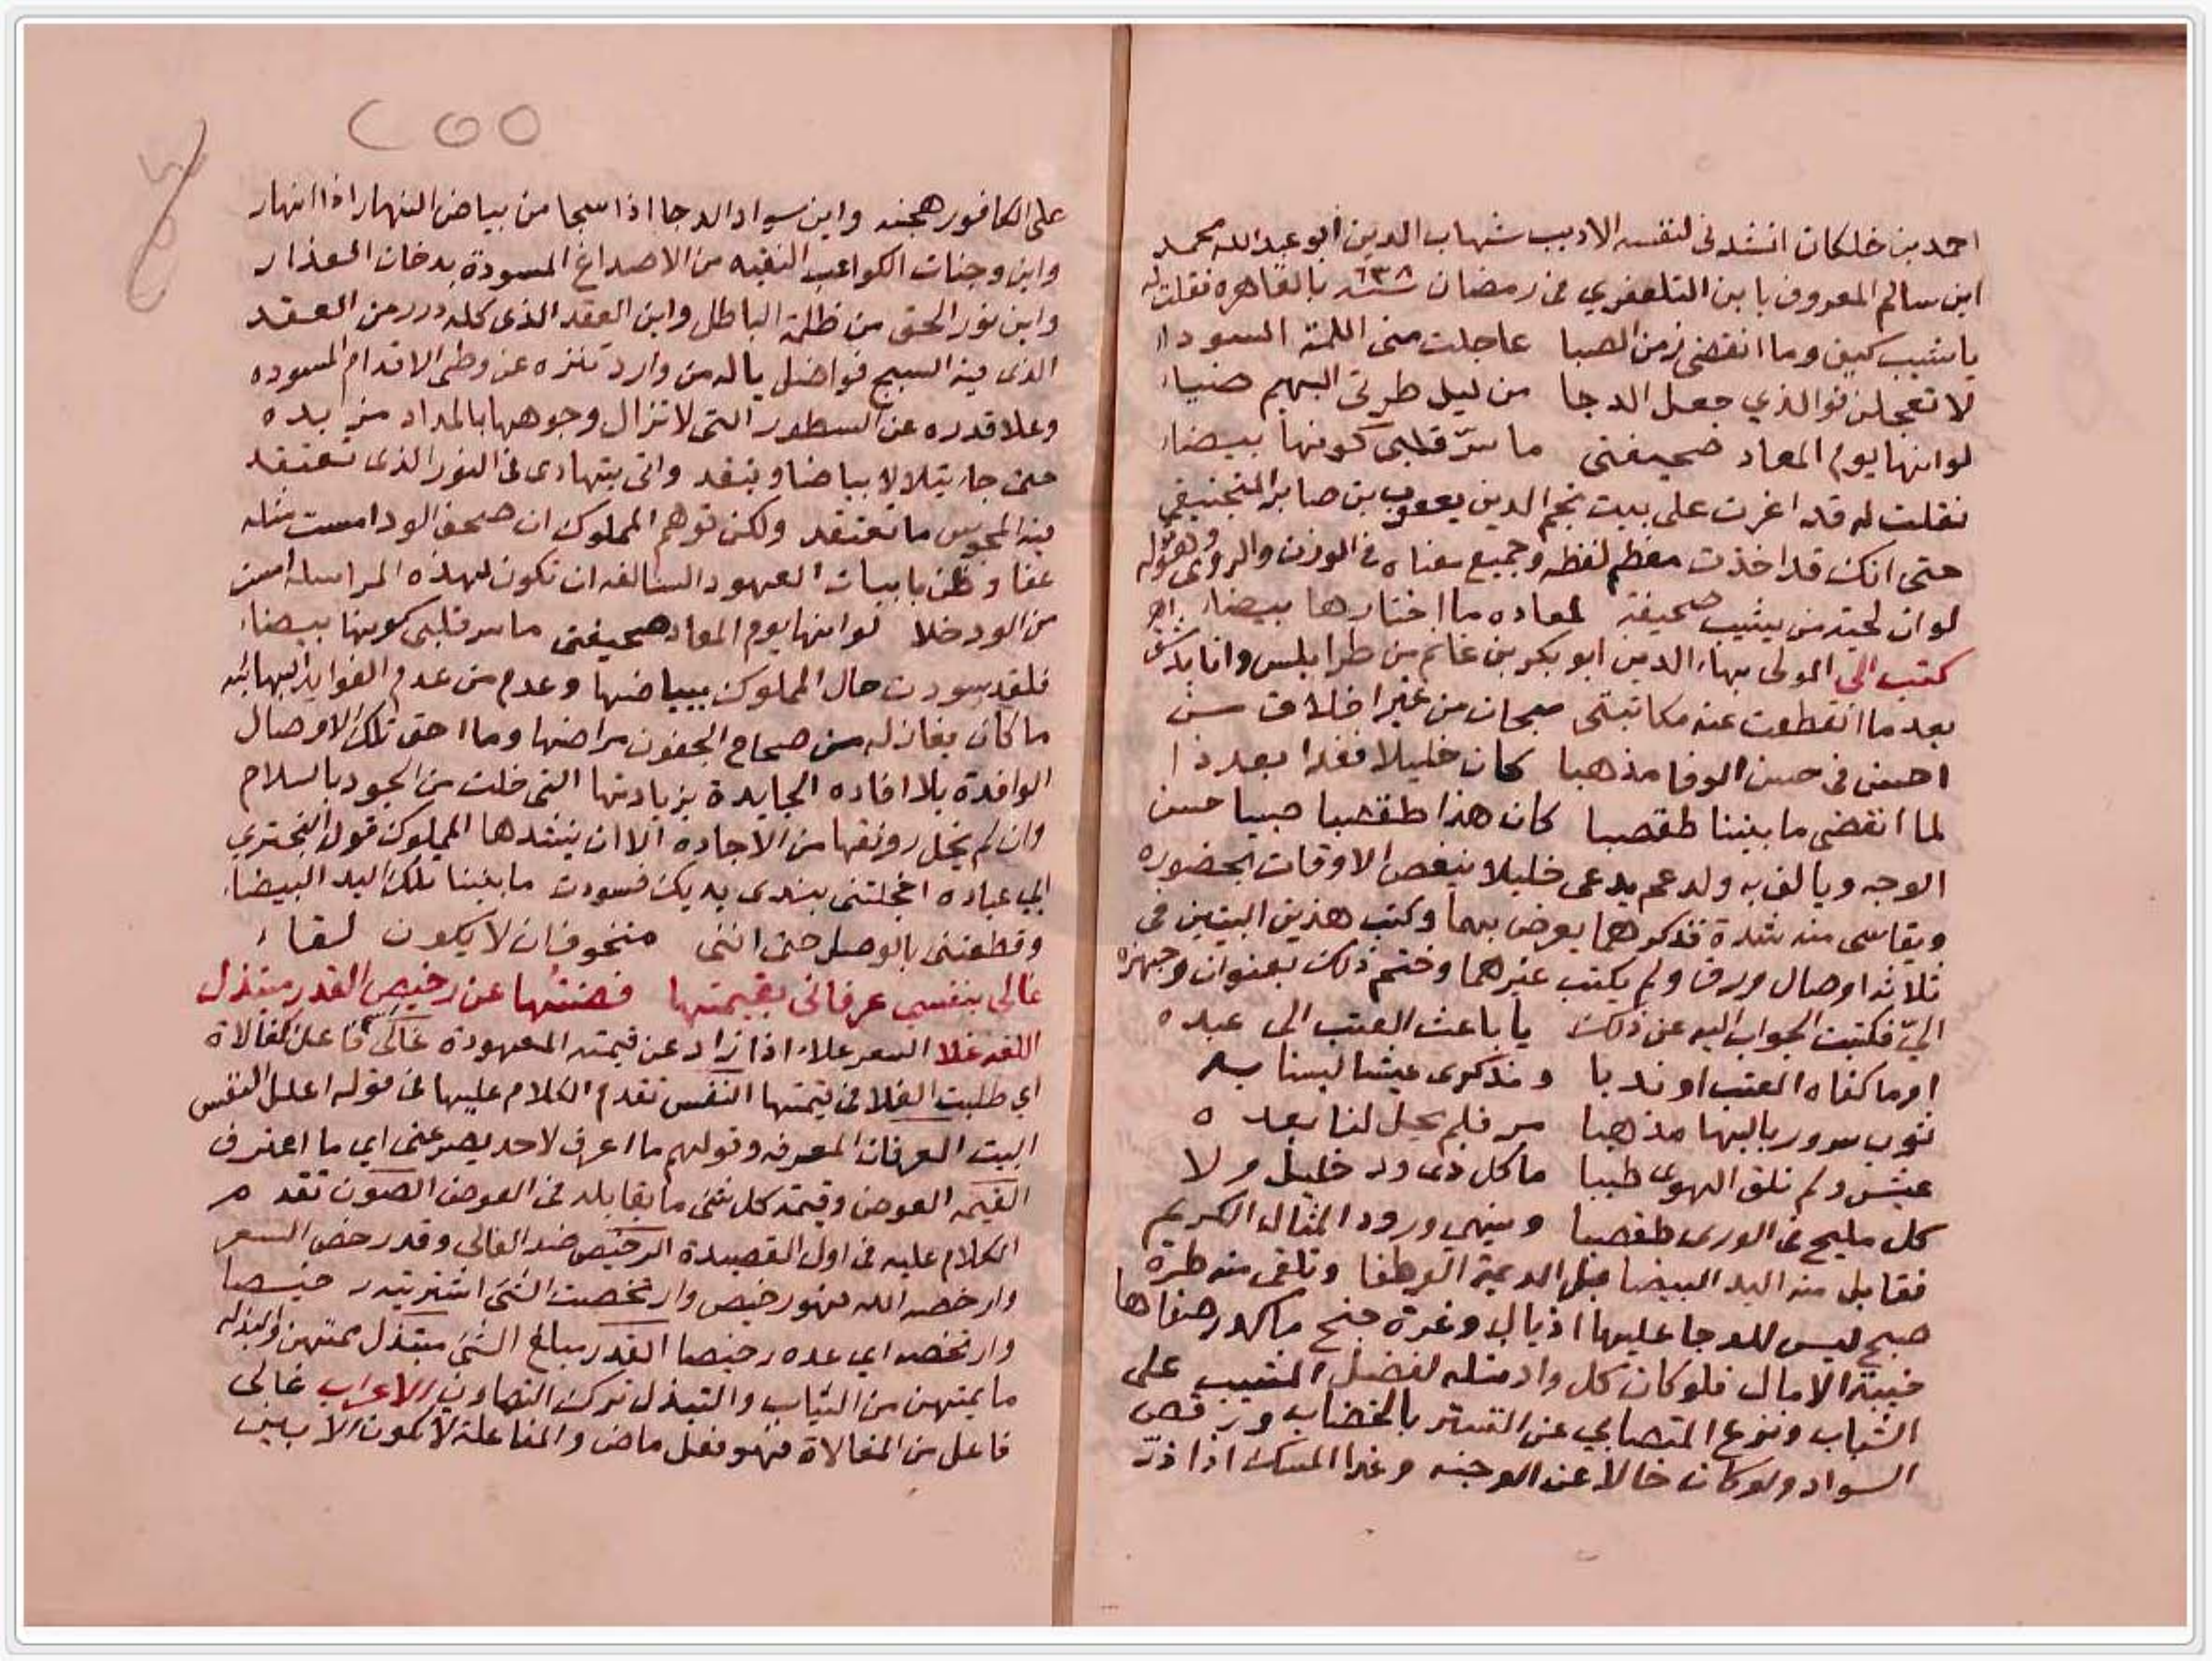 احمد بن خلكان انشدنى لنفسه الاديب شهاب الدين ابو عبدالله محمد
ابن سالم المعروف بابن التلعفري فى رمضان سنة ٦٣٨ بالقاهرة فقلت له
يا شيب كيف وما انقضى زمن الصبا عاجلت منى اللمة السودا
لا تعجلن فوالذي جعل الدجا من ليل طرتى البهيم ضياء
لو انها يوم المعاد صحيفتى ما سرّ قلبى كونها بيضاء
فقلت له قد اغرت على بيت نجم الدين يعقوب بن صابر المنجنيقي
حتى انك قد اخذت معظم لفظه وجميع معناه فى الوزن والروى وهو قوله
لو ان لحية من يشيب صحيفة لمعاده ما اختارها بيضاء اهـ
كتب الى المولى بهاء الدين ابو بكر بن غانم من طرابلس وانا بدمشق
بعد ما انقطعت عنه مكاتبتى صبحان من غير اخلاق من
احسن فى حسن الوفا مذهبا كان خليلا فغدا بعد ذا
لما انقضى ما بيننا طقصبا كان هذا طقصبا صبيا حسن
الوجه ويالف به ولد عم يدعى خليلا ينغص الاوقات بحضوره
ويقاسى منه شدة فذكرهما يعرض بهما وكتب هذين البيتين فى
ثلاثة اوصال ورق ولم يكتب غيرهما وختم ذلك بعنوان وجهزه
اليّ فكتبت الجواب اليه عن ذلك يا باعث العتب الى عبده
او ما كفاه العتب او ندبا ومذكرى عيشا لبسنا به
ثوب سرور بالبها مذهبا مر فلم يحل لنا بعده
عيش ولم نلق الهوى طيبا ما كل ذى ود خليل ولا
كل مليح فى الورى طقصبا وينهى ورود المثال الكريم
فقابل منه اليد البيضا قبل الديمة الوطفا وتلقى منه طرة
صبح ليس للدجا عليها اذيال وغرة جنح ما كدر صفاها
خيبة الامال فلو كان كل واد مثله لفضل المشيب على
الشباب ونزع المتصابي عن التستر بالخضاب ورفض
السواد ولو كان خالا عن الوجنه وغدا المسك اذا ذرّ
٢٥٥
على الكافور هجنه واين سواد الدجا اذا سجا من بياض النهار اذا انهار
واين وجنات الكواعب النقيه من الاصداغ المسودة بدخان العذار
واين نور الحق من ظلمة الباطل واين العقد الذى كله درر من العقد
الذى فيه السبج فواضل ياله من وارد تنزه عن وطى الاقدام المسوده
وعلا قدره عن السطور التى لا تزال وجوهها بالمداد مربده
حتى جاء يتلالا بياضا ويتقد واتى يتهادى فى النور الذى تعتقد
فيه المجوس ما تعتقد ولكن توهم المملوك ان صحف الود امست مثله
عفا وظن بابيات العهود السالفه ان تكون لهذه المراسله امست
من الود خلا لو انها يوم المعاد صحيفتى ما سر قلبى كونها بيضاء
فلقد سودت حال المملوك ببياضها وعدم من عدم الفوايد البهائيه
ما كان يغازله من صحاح الجفون مراضها وما احق تلك الاوصال
الوافدة بلا افاده الجايدة بزيادتها التى خلت من الجود بالسلام
وان لم يخل رونقها من الاجاده الا ان ينشدها المملوك قول البحتري
ابي عباده اخجلتنى بندى يديك فسودت ما بيننا تلك اليد البيضاء
وقطعتنى بالوصل حتى اننى متخوف ان لا يكون لقاء
غالى بنفسي عرفانى بقيمتها فصنتها عن رخيص القدر مبتذل
اللغه غلا السعر غلاء اذا زاد عن قيمته المعهودة غالى فاعل كفالاة
اي طلبت الغلا فى قيمتها النفس تقدم الكلام عليها فى قوله اعلل النفس
البيت العرفان المعرفه وقولهم ما اعرف لاحد يصرعنى اي ما اعترف
القيمه العوض وقيمة كل شى ما يقابله فى العوض الصون تقدم
الكلام عليه فى اول القصيدة الرخيص ضد الغالي وقد رخص السعر
وارخصه الله فهو رخيص وارتخصت الشى اشتريته رخيصا
وارتخصه اي عده رخيصا القدر مبالغ الشى مبتذل ممتهن والبذله
ما يمتهن من الثياب والتبذل ترك التصاون الاعراب غالى
فاعل من المغالاة فهو فعل ماض والمفاعلة لا تكون الا بين